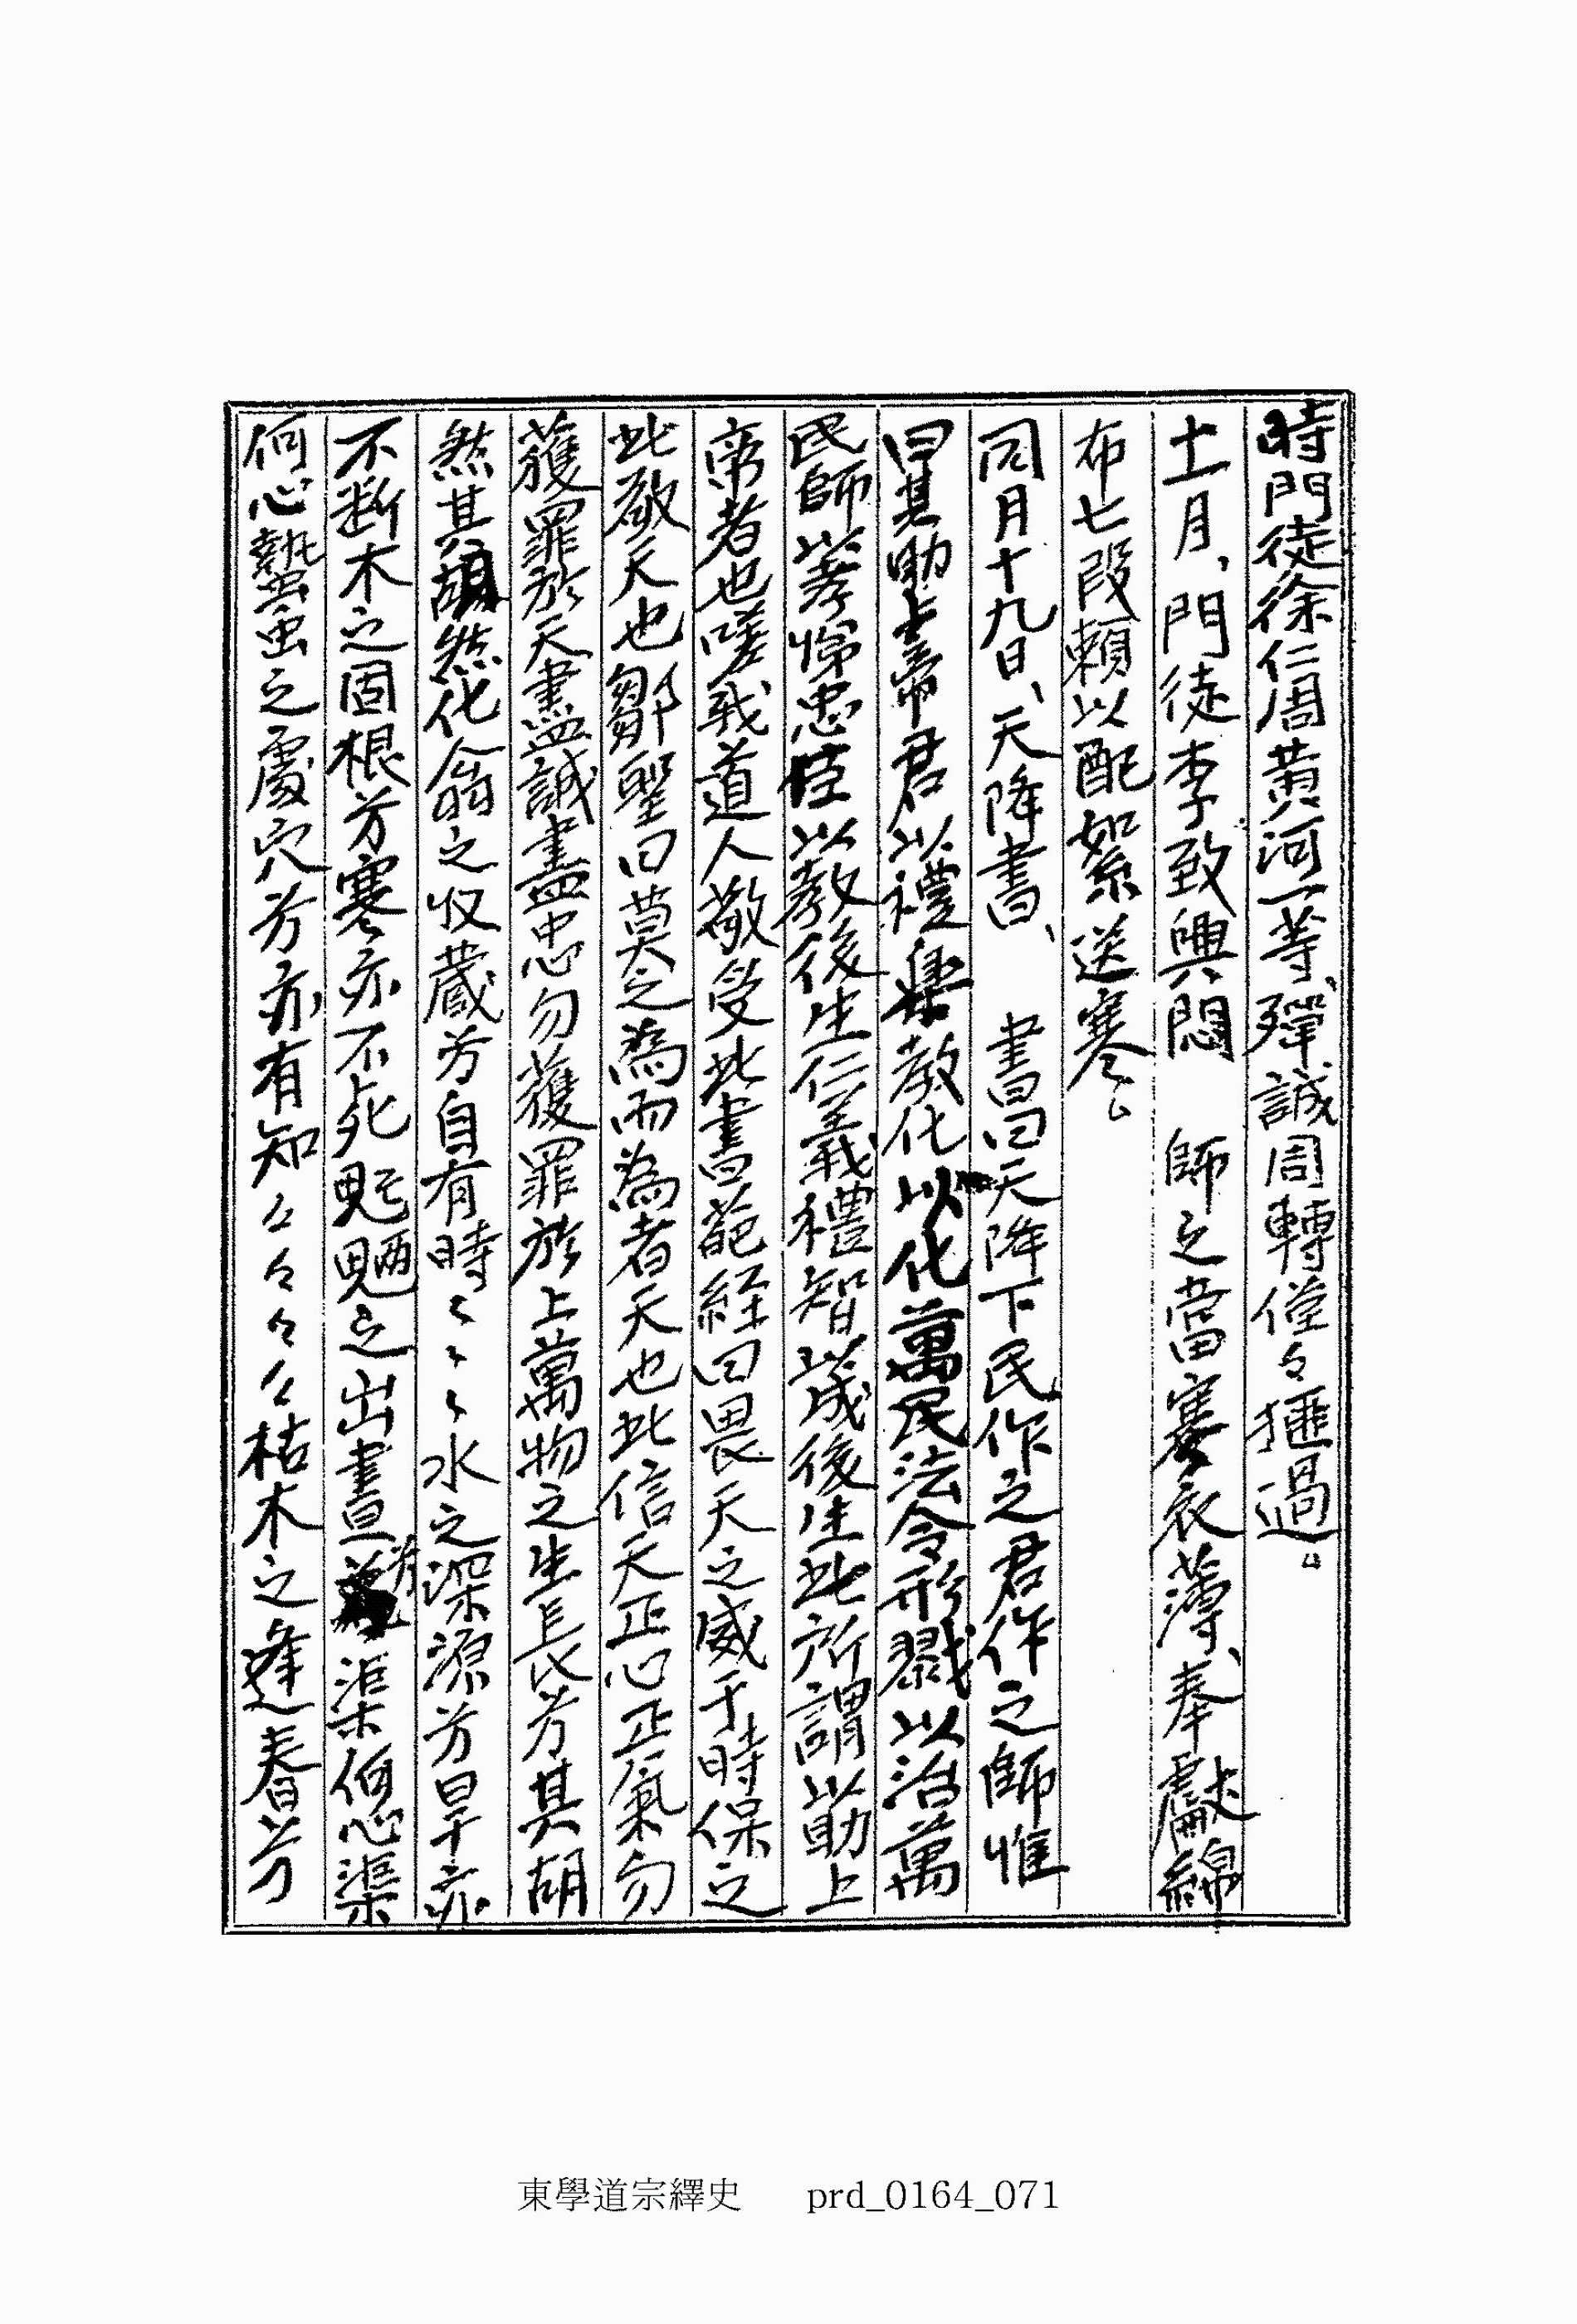 時門徒徐仁周黃河一等、殫誠周轉僅々捱過。
十一月、門徒李致興悶　師之當寒衣薄、奉獻綿
布七段賴以配絮送寒。
同月十九日、天降書、　書曰天降下民作之君作之師惟
曰其助上帝君以禮樂教化以化萬民法令形戮以治萬
民師以孝悌忠信以教後生仁義禮智以成後生此所謂以助上
帝者也嗟我道人敬受此書葩経曰畏天之威于時保之
此敬天也鄒聖曰莫之爲而爲者天也此信天正心正氣勿
獲罪於天盡誠盡忠勿獲罪於上萬物之生長芳其胡
然其胡然化翁之收藏芳自有時ヽヽヽ水之深源芳旱亦
不断木之固根芳寒亦不死魍魎之出晝芳渠何心渠
何心蟄虫之處穴芳亦有知々々々々枯木之逢春芳
東學道宗繹史　prd_0164_071